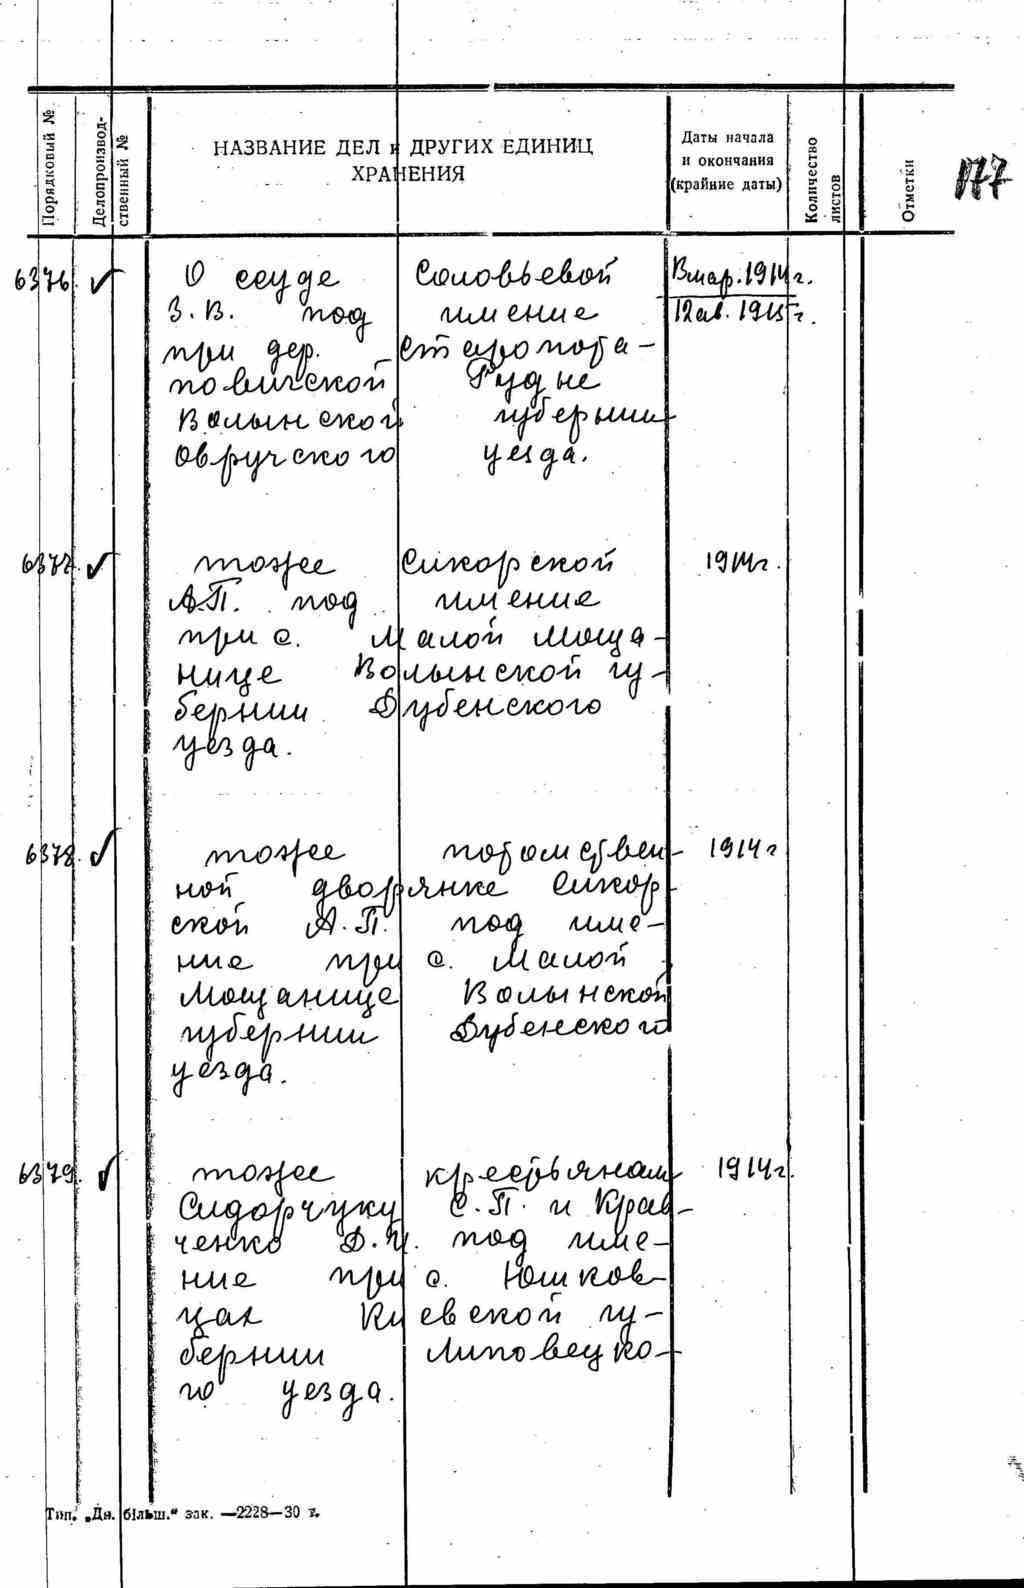 177
Порядковый №
Делопроизвод-
ственный №
НАЗВАНИЕ ДЕЛ и ДРУГИХ ЕДИНИЦ
ХРАНЕНИЯ
Даты начала
и окончания
(крайние даты)
Количество
листов
Отметки
6376. ✓ О ссуде Соловьевой
З.В. под имение
при дер. Старопота-
повичской Рудне
Волынской губернии
Овручского уезда.
мар. 1914 г.
1915 г.
6377. ✓ тоже Сикорской 1914 г.
А.П. под имение
при с. Малой Моща-
нице Волынской гу-
бернии Дубенского
уезда.
6378. ✓ тоже потомствен- 1914 г
ной дворянке Сикор-
ской А.П. под име-
ние при с. Малой
Мощанице Волынской
губернии Дубенского
уезда.
6379. ✓ тоже крестьянам 1914 г.
Сидорчуку С.П. и Крав-
ченко Д.И. под име-
ние при с. Юшков-
цах Киевской гу-
бернии Липовецко-
го уезда.
Тип. „Дн. більш.“ зак. —2228—30 г.